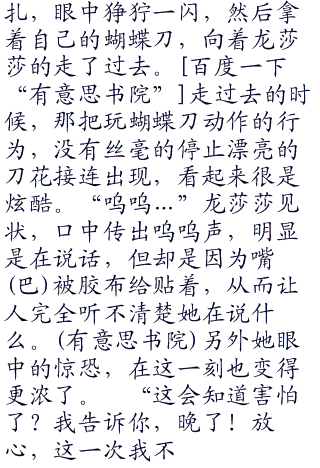 扎，眼中狰狞一闪，然后拿
着自己的蝴蝶刀，向着龙莎
莎的走了过去。[百度一下
“有意思书院”]走过去的时
候，那把玩蝴蝶刀动作的行
为，没有丝毫的停止漂亮的
刀花接连出现，看起来很是
炫酷。“呜呜…”龙莎莎见
状，口中传出呜呜声，明显
是在说话，但却是因为嘴
(巴)被胶布给贴着，从而让
人完全听不清楚她在说什
么。(有意思书院)另外她眼
中的惊恐，在这一刻也变得
更浓了。 “这会知道害怕
了？我告诉你，晚了！放
心，这一次我不